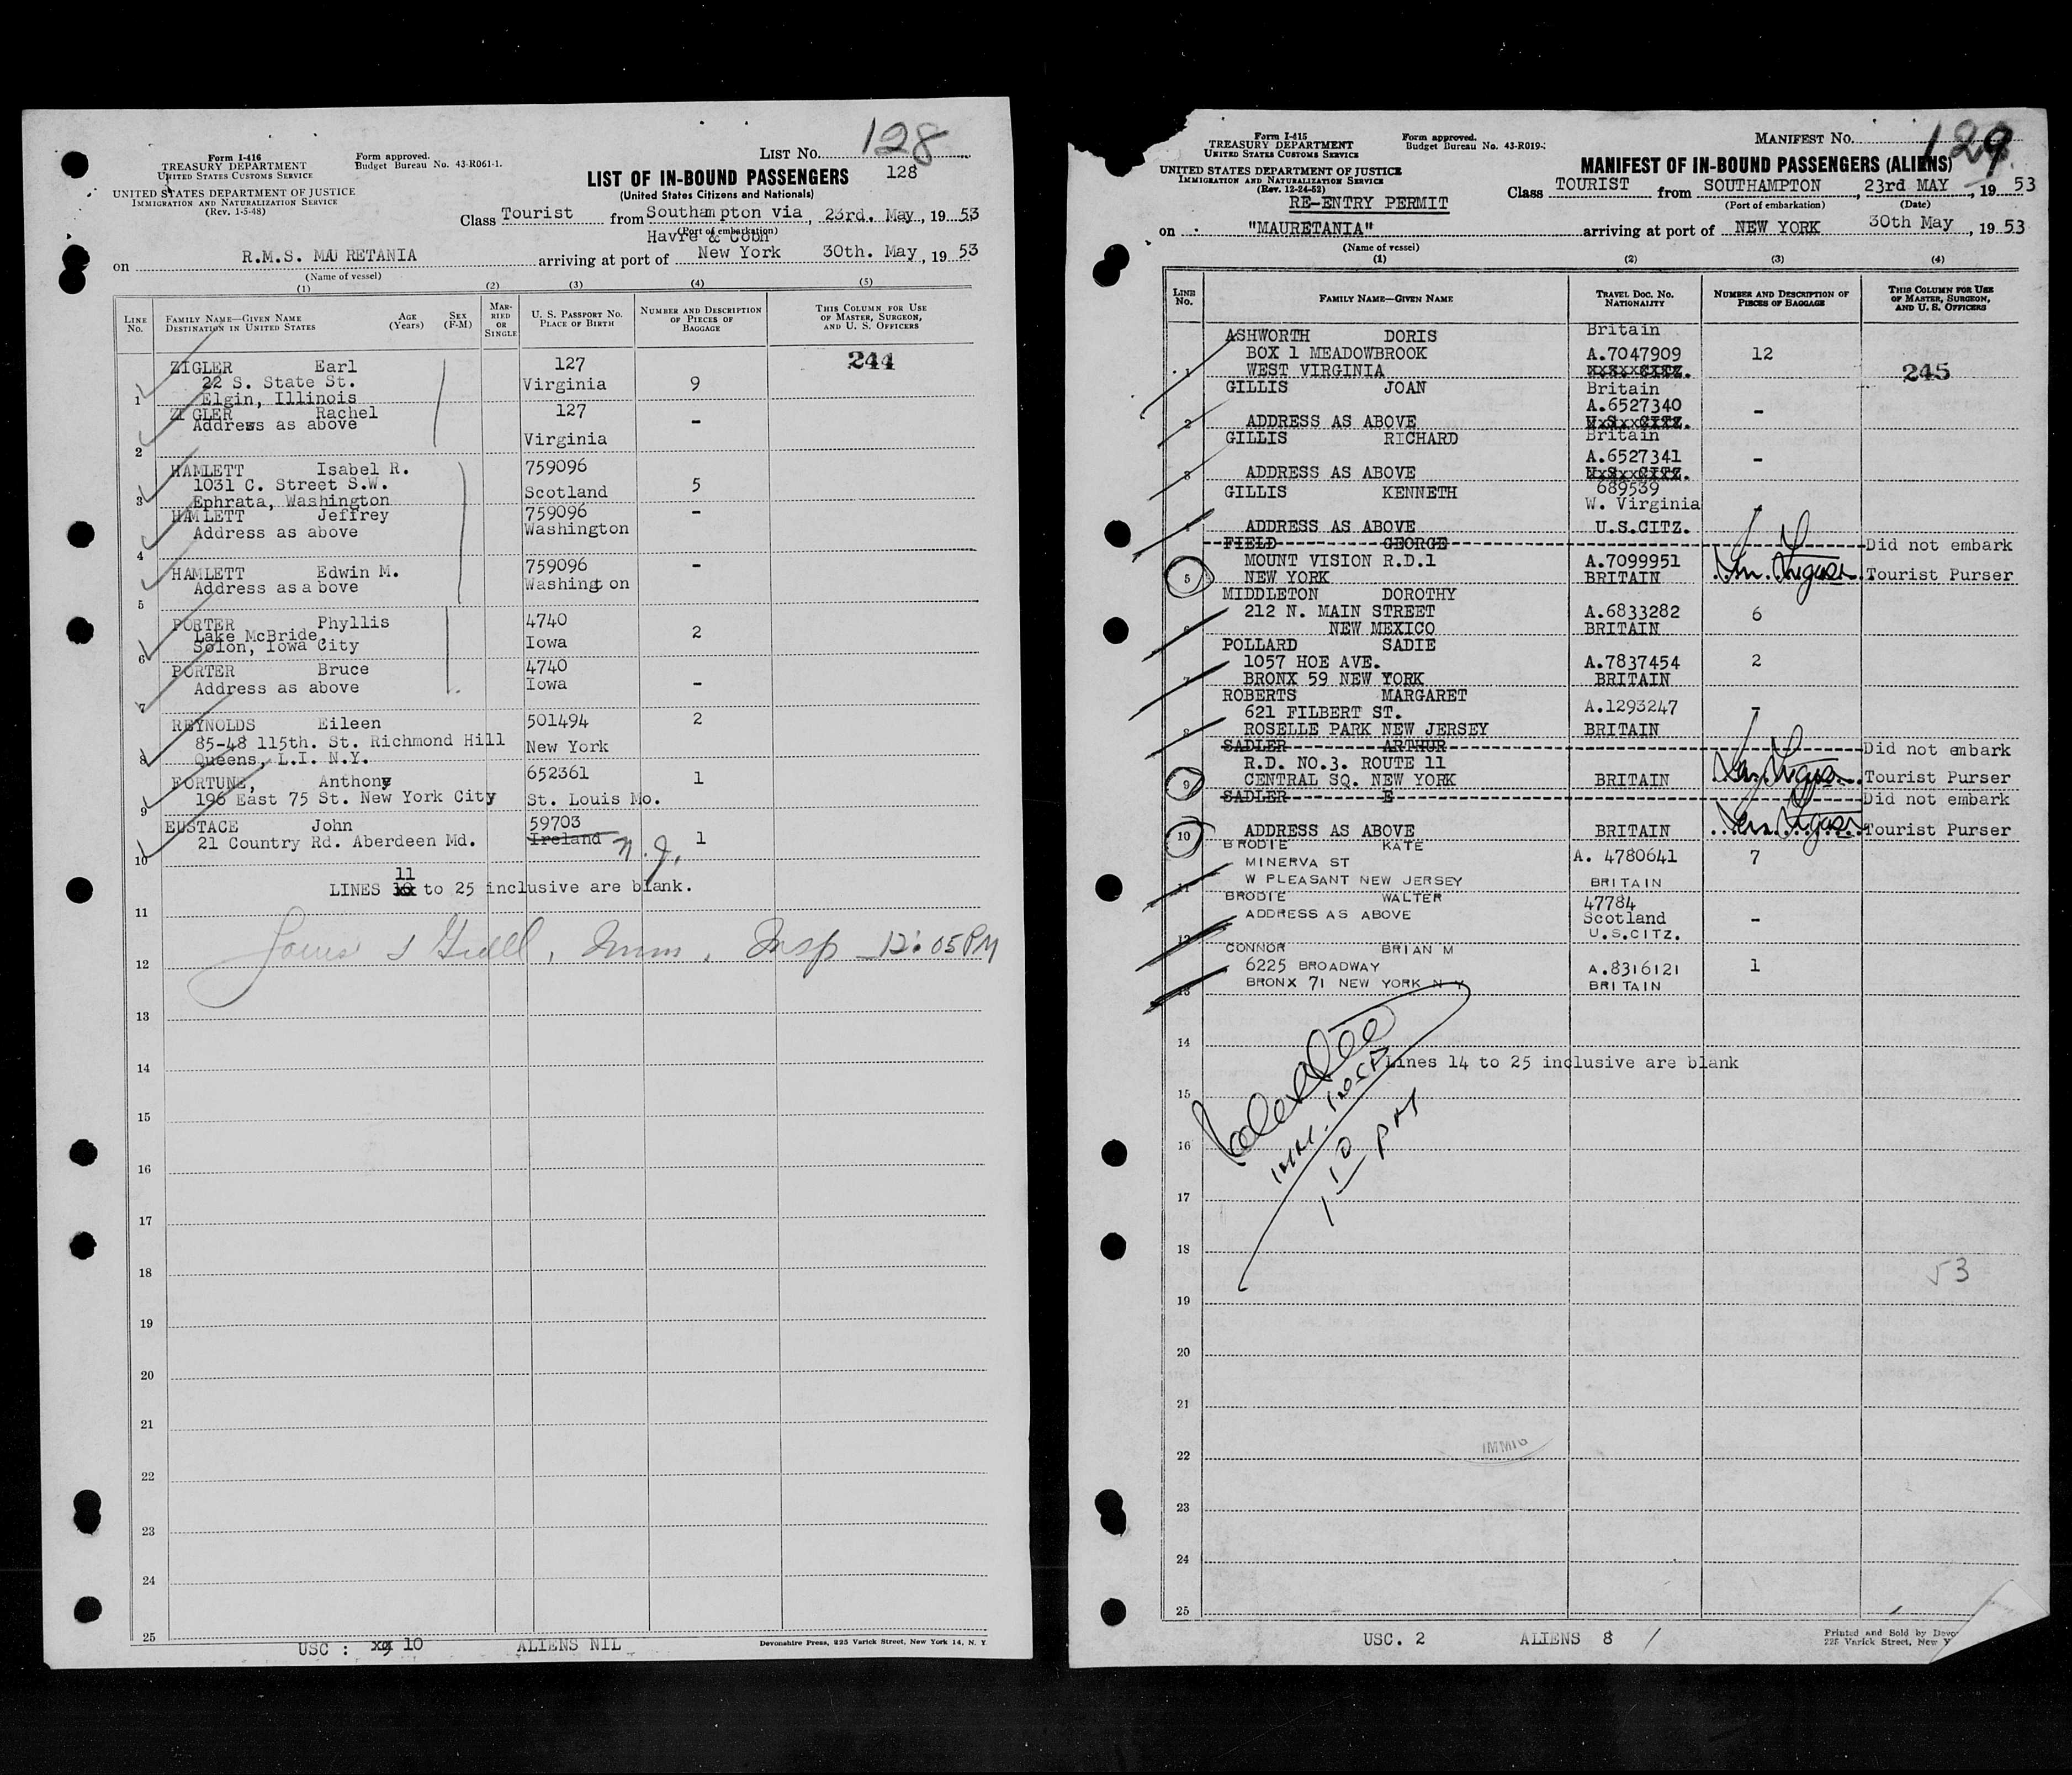 128
Form I-416
TREASURY DEPARTMENT
UNITED STATES CUSTOMS SERVICE
Form approved.
Budget Bureau No. 43-R061-1.
LIST NO.
128
UNITED STATES DEPARTMENT OF JUSTICE
IMMIGRATION AND NATURALIZATION SERVICE
(Rev. 1-5-48)
LIST OF IN-BOUND PASSENGERS
(United States Citizens and Nationals)
Class Tourist from Southampton via, 23rd. May, 19 53
(Port of embarkation)
Havre & Cobh
on R.M.S. MAURETANIA arriving at port of New York 30th. May, 19 53
(Name of vessel)
(1) (2) (3) (4) (5)
LINE No.
FAMILY NAME—GIVEN NAME
DESTINATION IN UNITED STATES
AGE (Years)
SEX (F-M)
MARRIED OR SINGLE
U. S. PASSPORT NO.
PLACE OF BIRTH
NUMBER AND DESCRIPTION OF PIECES OF BAGGAGE
THIS COLUMN FOR USE OF MASTER, SURGEON, AND U. S. OFFICERS
ZIGLER Earl 127 244
22 S. State St. Virginia 9
1 Elgin, Illinois
ZIGLER Rachel 127
Address as above -
2 Virginia
HAMLETT Isabel R. 759096
1031 C. Street S.W. Scotland 5
3 Ephrata, Washington
HAMLETT Jeffrey 759096 -
Address as above Washington
4
HAMLETT Edwin M. 759096 -
Address as a bove Washingt on
5
PORTER Phyllis 4740
Lake McBride, 2
6 Solon, Iowa City Iowa
PORTER Bruce 4740
Address as above Iowa -
7
REYNOLDS Eileen 501494 2
85-48 115th. St. Richmond Hill New York
8 Queens, L.I. N.Y.
FORTUNE, Anthony 652361 1
9 196 East 75 St. New York City St. Louis Mo.
EUSTACE John 59703
21 Country Rd. Aberdeen Md. Ireland N.J. 1
10
11
LINES to 25 inclusive are blank.
11
Insp 12:05PM
12
13
14
15
16
17
18
19
20
21
22
23
24
25
USC : 10 ALIENS NIL
Devonshire Press, 225 Varick Street, New York 14, N. Y.
Form I-415
TREASURY DEPARTMENT
UNITED STATES CUSTOMS SERVICE
Form approved.
Budget Bureau No. 43-R019-
MANIFEST NO. 129
UNITED STATES DEPARTMENT OF JUSTICE
IMMIGRATION AND NATURALIZATION SERVICE
(Rev. 12-24-52)
RE-ENTRY PERMIT
MANIFEST OF IN-BOUND PASSENGERS (ALIENS)
Class TOURIST from SOUTHAMPTON, 23rd MAY, 19 53
(Port of embarkation) (Date)
on "MAURETANIA" arriving at port of NEW YORK 30th May, 19 53
(Name of vessel)
(1) (2) (3) (4)
LINE No.
FAMILY NAME—GIVEN NAME
TRAVEL DOC. NO.
NATIONALITY
NUMBER AND DESCRIPTION OF PIECES OF BAGGAGE
THIS COLUMN FOR USE OF MASTER, SURGEON, AND U. S. OFFICERS
ASHWORTH DORIS Britain
BOX 1 MEADOWBROOK A.7047909 12
1 WEST VIRGINIA 245
GILLIS JOAN Britain
A.6527340 -
2 ADDRESS AS ABOVE
GILLIS RICHARD Britain
A.6527341 -
3 ADDRESS AS ABOVE
GILLIS KENNETH 689539
W. Virginia
4 ADDRESS AS ABOVE U.S.CITZ.
FIELD GEORGE Did not embark
MOUNT VISION R.D.1 A.7099951
5 NEW YORK BRITAIN Tourist Purser
MIDDLETON DOROTHY
212 N. MAIN STREET A.6833282 6
6 NEW MEXICO BRITAIN
POLLARD SADIE
1057 HOE AVE. A.7837454 2
7 BRONX 59 NEW YORK BRITAIN
ROBERTS MARGARET
621 FILBERT ST. A.1293247 -
8 ROSELLE PARK NEW JERSEY BRITAIN
SADLER ARTHUR Did not embark
R.D. NO.3. ROUTE 11
9 CENTRAL SQ. NEW YORK BRITAIN Tourist Purser
SADLER E Did not embark
10 ADDRESS AS ABOVE BRITAIN Tourist Purser
BRODIE KATE
MINERVA ST A. 4780641 7
11 W PLEASANT NEW JERSEY BRITAIN
BRODIE WALTER 47784
ADDRESS AS ABOVE Scotland -
12 U.S.CITZ.
CONNOR BRIAN M
6225 BROADWAY A.8316121 1
13 BRONX 71 NEW YORK N Y BRITAIN
14
Lines 14 to 25 inclusive are blank
15
IMM. INSP
16
1 10 PM
17
18
53
19
20
21
22
IMMIG
23
24
25
USC. 2 ALIENS 8
Printed and Sold by
225 Varick Street, New Y